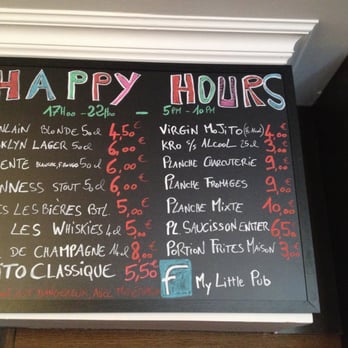 HAPPY HOURS
17H00 - 22H00 - 5PM - 10PM
BLONDE 50cl 4,50€
LAGER 50cl 6,00€
50cl 6,00€
STOUT 50cl 6,00€
LES BIÈRES BTL 5,00€
LES WHISKIES 4cl 5,00€
DE CHAMPAGNE 14cl 8,00€
CLASSIQUE 5,50€
VIRGIN MOJITO 4,00€
KRO % ALCOOL 25cl 3,00€
PLANCHE CHARCUTERIE 9,00€
PLANCHE FROMAGES 9,00€
PLANCHE MIXTE 10,00€
PL SAUCISSON ENTIER 6,50€
PORTION FRITES MAISON 3,00€
f MY LITTLE PUB